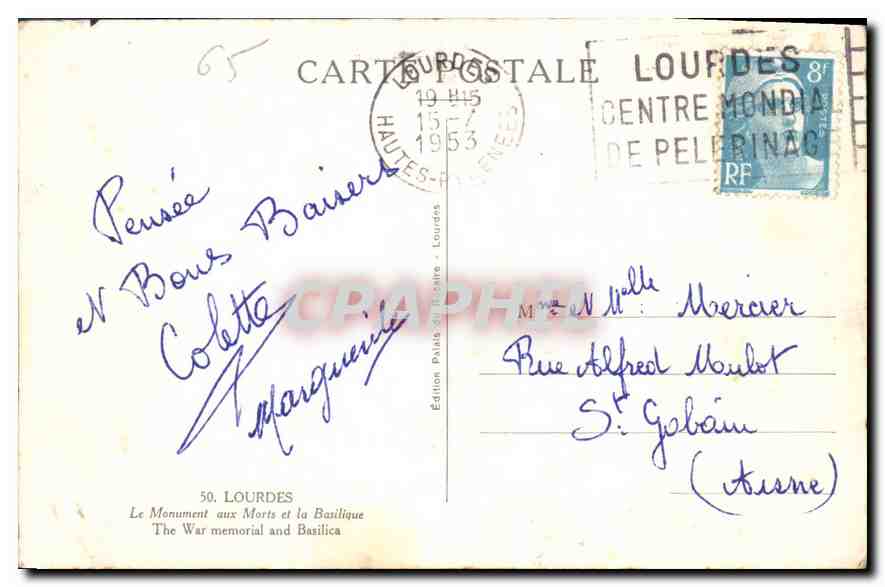 65
CARTE POSTALE
LOURDES
19 H15
15-7
1953
HAUTES-PYRENEES
LOURDES
CENTRE MONDIA
DE PELERINAG
8F
RF
Pensée
et Bons Baisers
Colette
Marguerite
CPAPHIL
Edition Palais du Rosaire - Lourdes
Mme et Melle Mercier
Rue Alfred Moulot
St. Gobain
(Aisne)
50. LOURDES
Le Monument aux Morts et la Basilique
The War memorial and Basilica